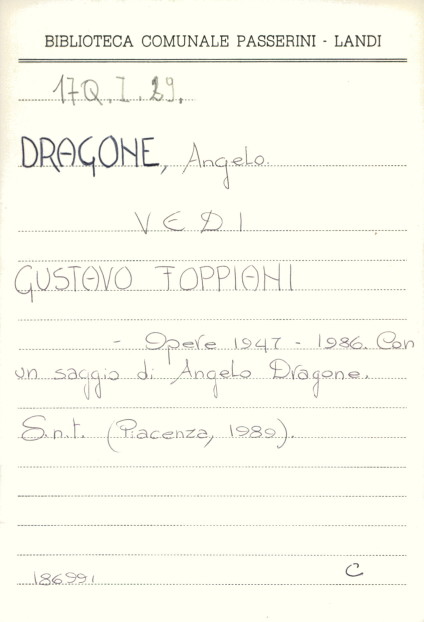 BIBLIOTECA COMUNALE PASSERINI - LANDI
17Q.I.29.
DRAGONE, Angelo.
VEDI
GUSTAVO FOPPIANI
- Opere 1947 - 1986. Con
un saggio di Angelo Dragone.
S.n.t. (Piacenza, 1989).
186991 C